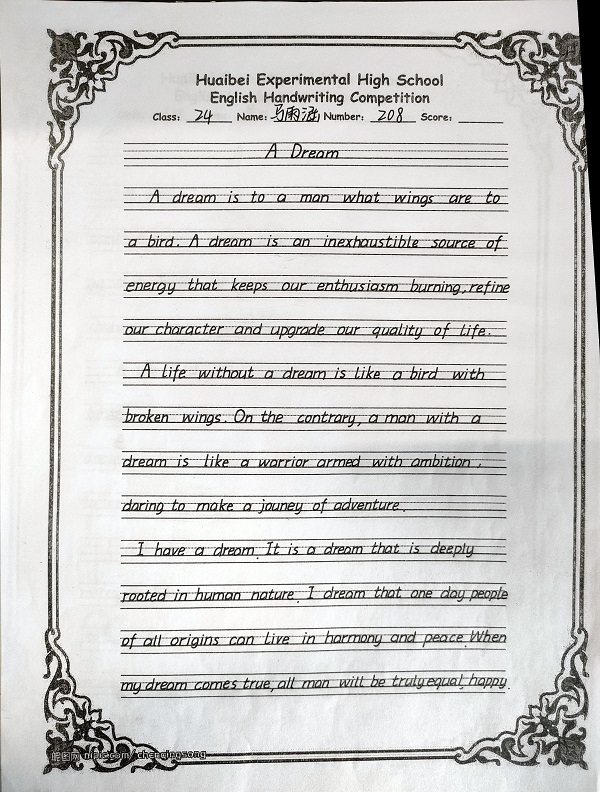 Huaibei Experimental High School
English Handwriting Competition
Class: 24 Name: 马雨涵 Number: 208 Score:
A Dream
A dream is to a man what wings are to
a bird. A dream is an inexhaustible source of
energy that keeps our enthusiasm burning, refine
our character and upgrade our quality of life.
A life without a dream is like a bird with
broken wings. On the contrary, a man with a
dream is like a warrior armed with ambition,
daring to make a jouney of adventure.
I have a dream. It is a dream that is deeply
rooted in human nature. I dream that one day people
of all origins can live in harmony and peace. When
my dream comes true, all man will be truly equal, happy.
nipic.com/chenqingsong